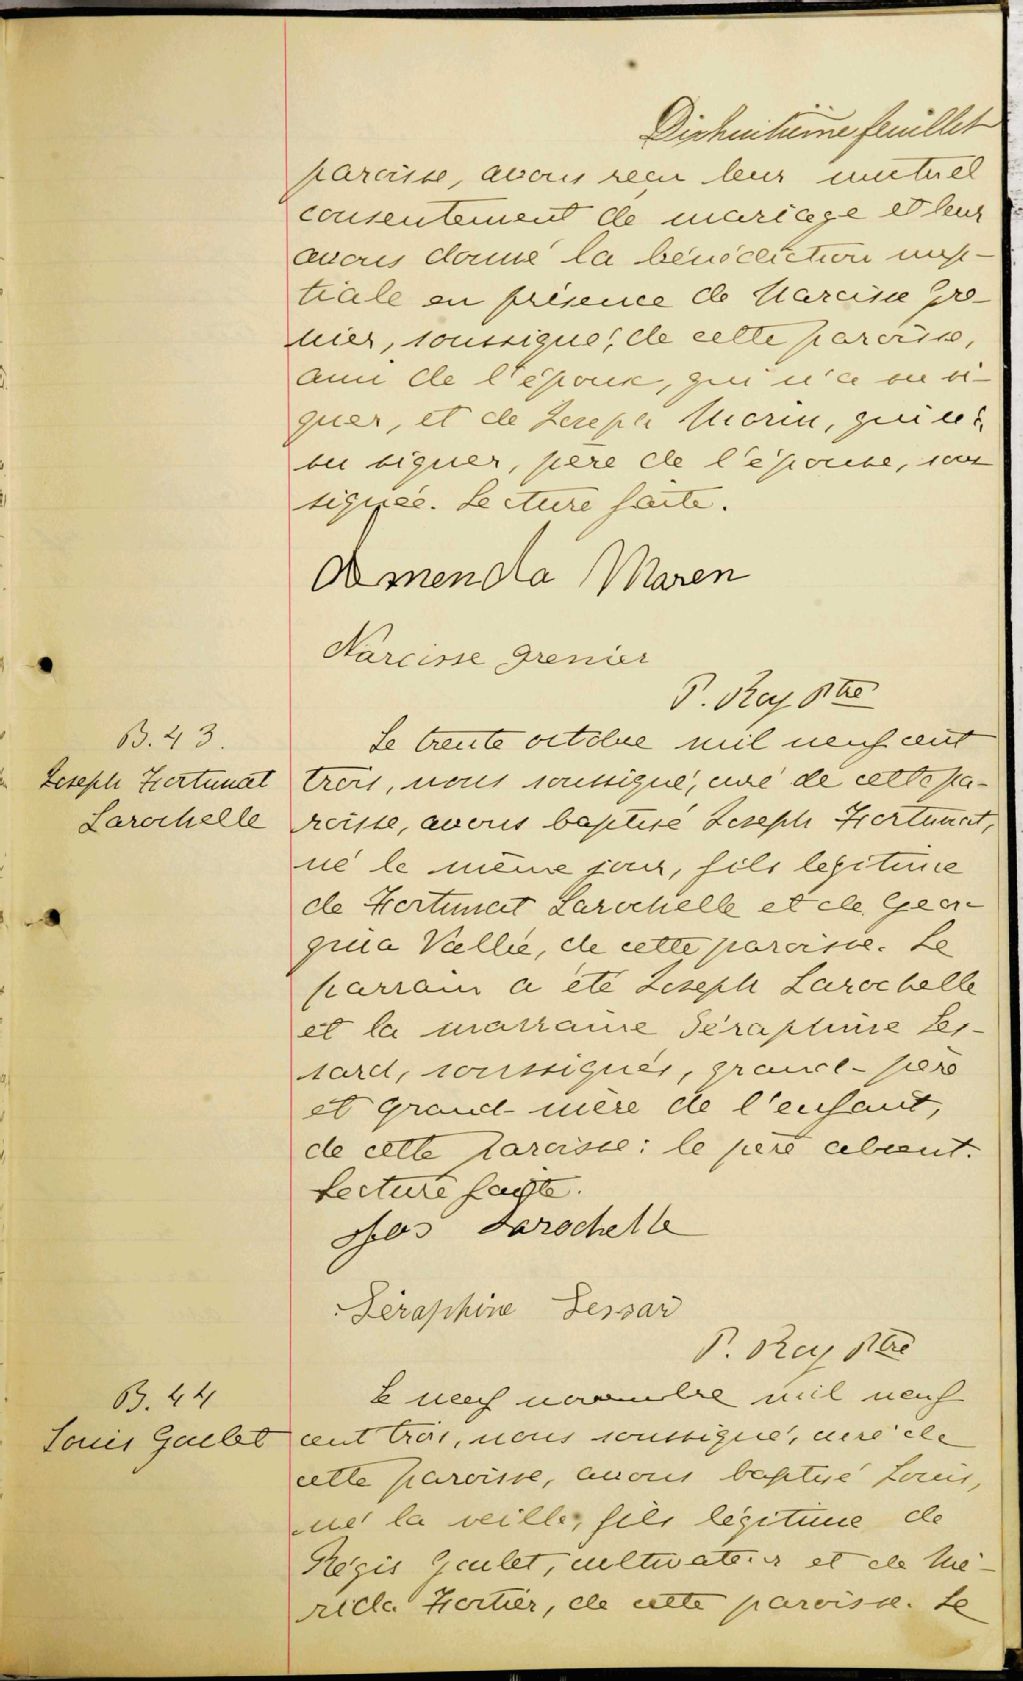 Dixhuitième feuillet
paroisse, avons reçu leur mutuel
consentement de mariage et leur
avons donné la bénédiction nup-
tiale en présence de Narcisse Gre-
nier, soussigné, de cette paroisse,
ami de l'époux, qui n'a su si-
gner, et de Joseph Morin, qui n'a
su signer, père de l'épouse, sous
signée. Lecture faite.
Amenda Maren
Narcisse Grenier
P. Roy Ptre
B. 43.
Joseph Fortunat
Larochelle
Le trente octobre mil neuf cent
trois, nous soussigné, curé de cette pa-
roisse, avons baptisé Joseph Fortunat,
né le même jour, fils légitime
de Fortunat Larochelle et de Geor-
gina Vallée, de cette paroisse. Le
parrain a été Joseph Larochelle
et la marraine Séraphine Les-
sard, soussignés, grand-père
et grand-mère de l'enfant,
de cette paroisse: le père absent.
Lecture faite.
Jos Larochelle
Séraphine Lessard
P. Roy Ptre
B. 44
Louis Goulet
Le neuf novembre mil neuf
cent trois, nous soussigné, curé de
cette paroisse, avons baptisé Louis,
né la veille, fils légitime de
Régis Goulet, cultivateur et de Mé-
rida Fortier, de cette paroisse. Le